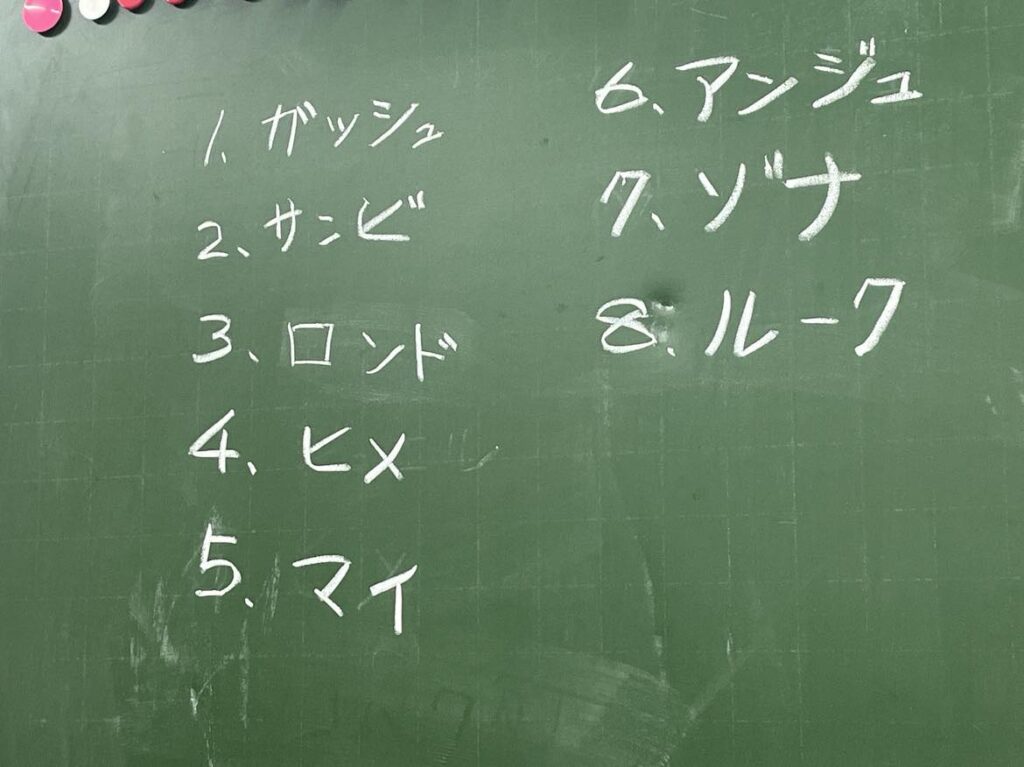 1. ガッシュ
2、サンビ
3、ロンド
4、ヒメ
5、マイ
6、アンジュ
7、ゾナ
8、ルーク